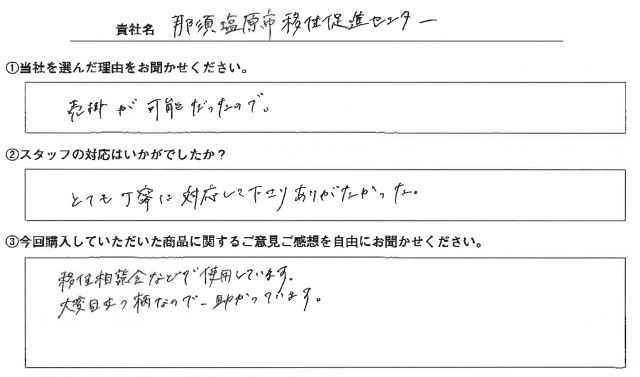 貴社名 那須塩原市移住促進センター
①当社を選んだ理由をお聞かせください。
売掛が可能だったので。
②スタッフの対応はいかがでしたか？
とても丁寧に対応して下さりありがたかった。
③今回購入していただいた商品に関するご意見ご感想を自由にお聞かせください。
移住相談会などで使用しています。
大変目立つ柄なので助かっています。